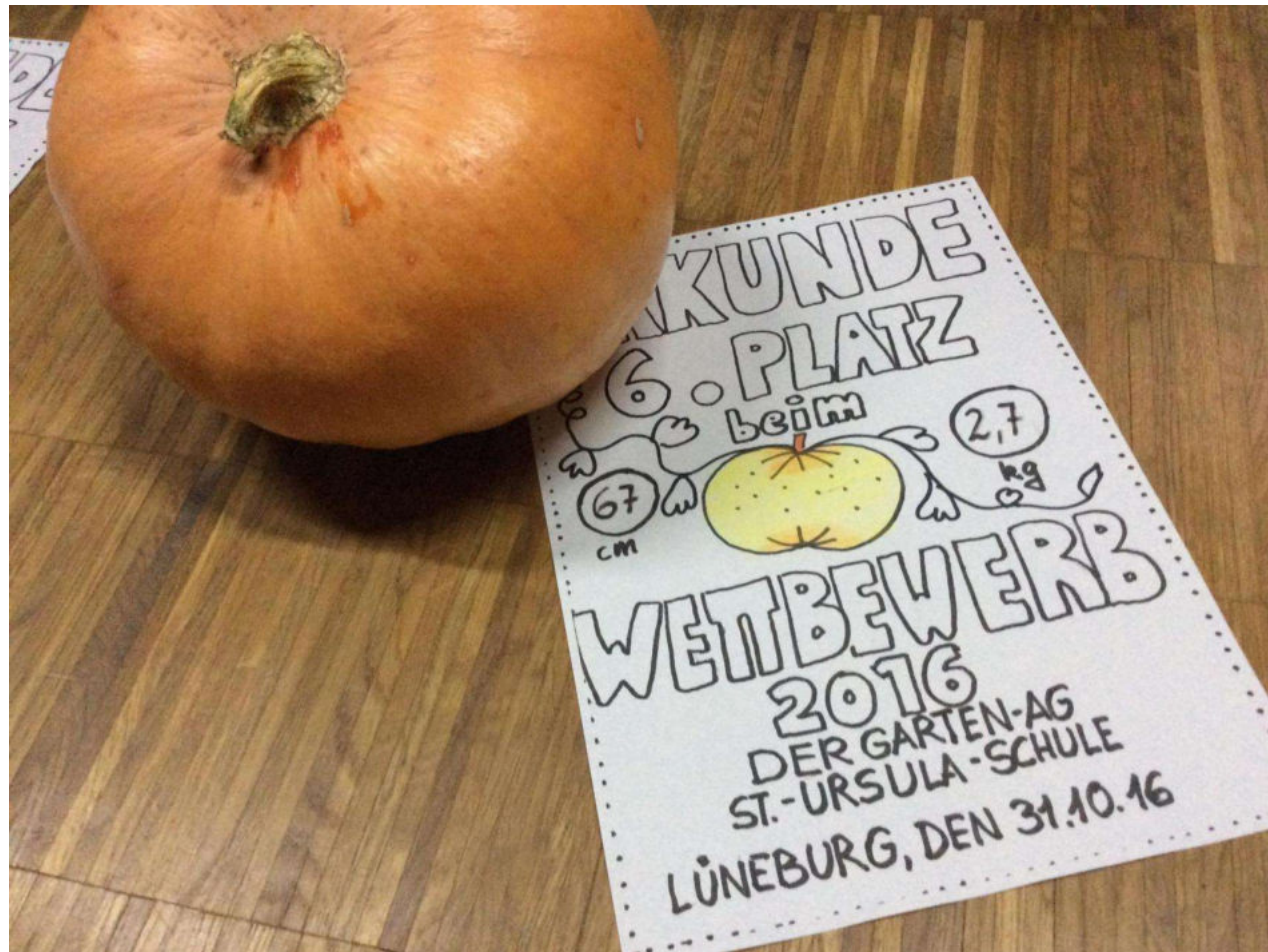 RKUNDE
6. PLATZ
beim
2,7
kg
67
cm
WETTBEWERB
2016
DER GARTEN-AG
ST.-URSULA-SCHULE
LÜNEBURG, DEN 31.10.16